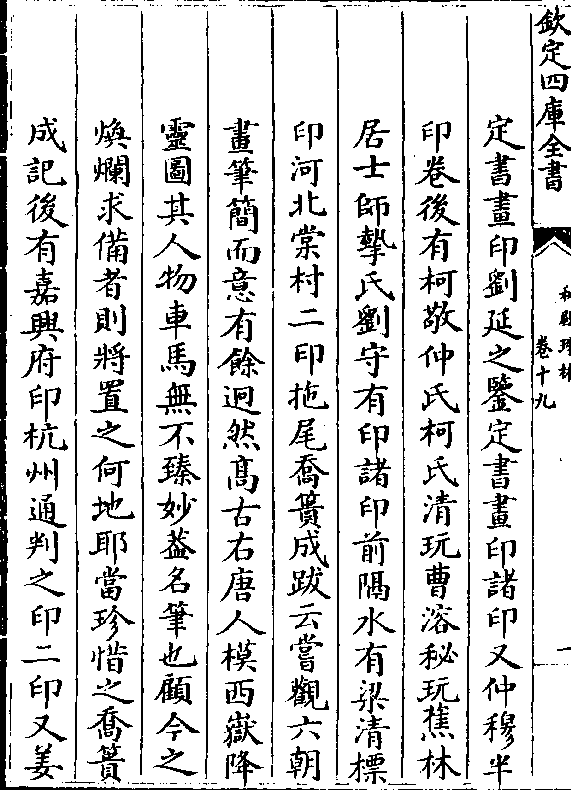 欽定四庫全書
卷十九
定書畫印劉延之鑒定書畫印諸印又仲穆半
印卷後有柯敬仲氏柯氏清玩曹溶秘玩蕉林
居士師摯氏劉守有印諸印前隔水有梁清標
印河北棠村二印拖尾喬簣成跋云嘗觀六朝
畫筆簡而意有餘迥然髙古右唐人模西嶽降
靈圖其人物車馬無不臻妙葢名筆也顧今之
煥爛求備者則將置之何地耶當珍惜之喬簣
成記後有嘉興府印杭州通判之印二印又姜